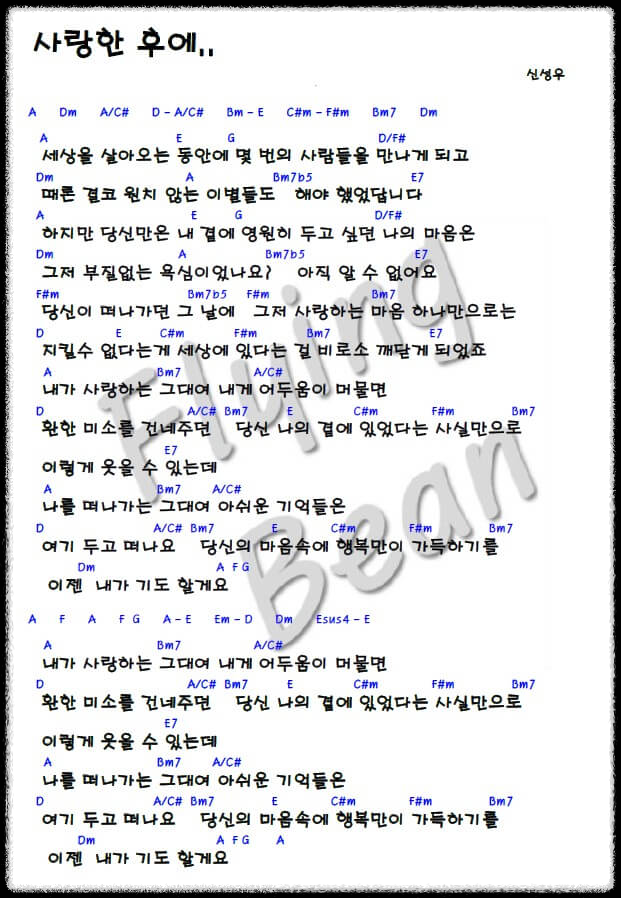 사랑한 후에..
신성우
A Dm A/C# D - A/C# Bm - E C#m - F#m Bm7 Dm
A E G D/F#
세상을 살아오는 동안에 몇 번의 사람들을 만나게 되고
Dm A Bm7b5 E7
때론 결코 원치 않는 이별들도 해야 했었답니다
A E G D/F#
하지만 당신만은 내 곁에 영원히 두고 싶던 나의 마음은
Dm A Bm7b5 E7
그저 부질없는 욕심이었나요? 아직 알 수 없어요
F#m Bm7b5 F#m Bm7
당신이 떠나가던 그 날에 그저 사랑하는 마음 하나만으로는
D E C#m F#m Bm7 E7
지킬수 없다는게 세상에 있다는 걸 비로소 깨닫게 되었죠
A Bm7 A/C#
내가 사랑하는 그대여 내게 어두움이 머물면
D A/C# Bm7 E C#m F#m Bm7
환한 미소를 건네주던 당신 나의 곁에 있었다는 사실만으로
E7
이렇게 웃을 수 있는데
A Bm7 A/C#
나를 떠나가는 그대여 아쉬운 기억들은
D A/C# Bm7 E C#m F#m Bm7
여기 두고 떠나요 당신의 마음속에 행복만이 가득하기를
Dm A F G
이젠 내가 기도 할게요
A F A F G A - E Em - D Dm Esus4 - E
A Bm7 A/C#
내가 사랑하는 그대여 내게 어두움이 머물면
D A/C# Bm7 E C#m F#m Bm7
환한 미소를 건네주면 당신 나의 곁에 있었다는 사실만으로
E7
이렇게 웃을 수 있는데
A Bm7 A/C#
나를 떠나가는 그대여 아쉬운 기억들은
D A/C# Bm7 E C#m F#m Bm7
여기 두고 떠나요 당신의 마음속에 행복만이 가득하기를
Dm A F G A
이젠 내가 기도 할게요
Flying
Bean